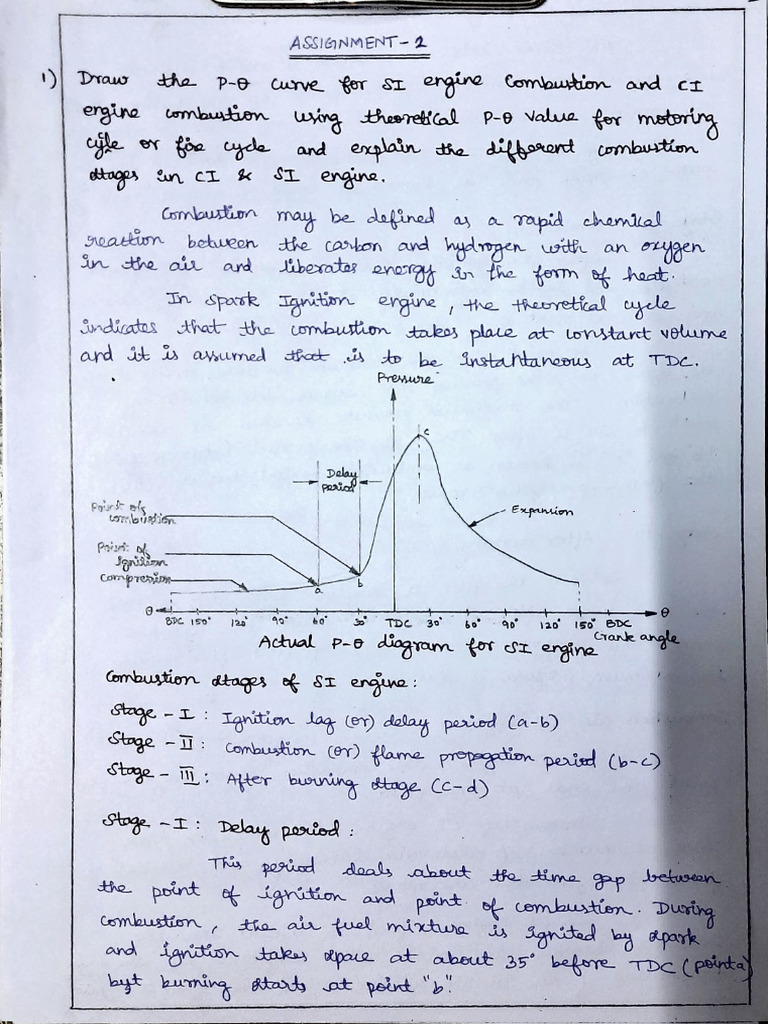 ASSIGNMENT - 2
1) Draw the P-θ curve for SI engine combustion and CI
engine combustion using theoretical P-θ value for motoring
cycle or fire cycle and explain the different combustion
stages in CI & SI engine.
Combustion may be defined as a rapid chemical
reaction between the carbon and hydrogen with an oxygen
in the air and liberates energy in the form of heat.
In Spark Ignition engine, the theoretical cycle
indicates that the combustion takes place at constant volume
and it is assumed that is to be instantaneous at TDC.
Pressure
c
Delay
period
Point of
combustion
Expansion
Point of
Ignition
compression
a
b
θ
θ
BDC 150° 120° 90° 60° 30° TDC 30° 60° 90° 120° 150° BDC
Crank angle
Actual P-θ diagram for SI engine
Combustion stages of SI engine:
Stage - I : Ignition lag (or) delay period (a-b)
Stage - II : Combustion (or) flame propagation period (b-c)
Stage - III : After burning stage (c-d)
Stage - I : Delay period :
This period deals about the time gap between
the point of ignition and point of combustion. During
combustion, the air fuel mixture is ignited by spark
and ignition takes space at about 35° before TDC (point a)
but burning starts at point "b".